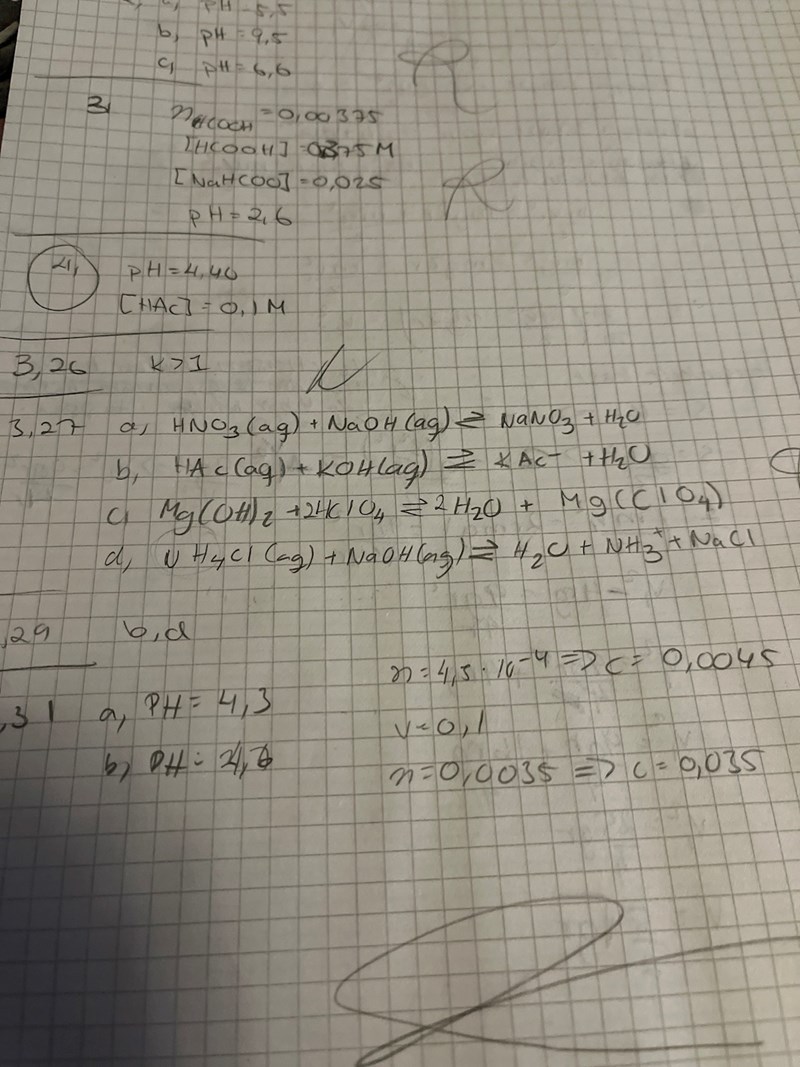 pH = 5,5
b, pH = 9,5
c, pH = 6,6
3, nHCOOH = 0,00375
[HCOOH] = 0,375 M
[NaHCOO] = 0,025
pH = 2,6
4, pH = 4,40
[HAc] = 0,1 M
3,26 K>1
3,27 a, HNO₃(aq) + NaOH(aq) ⇌ NaNO₃ + H₂O
b, HAc(aq) + KOH(aq) ⇌ KAc⁻ + H₂O
c, Mg(OH)₂ + 2HClO₄ ⇌ 2H₂O + Mg(ClO₄)
d, NH₄Cl(aq) + NaOH(aq) ⇌ H₂O + NH₃⁺ + NaCl
,29 b,d
n = 4,5 · 10⁻⁴ => c = 0,0045
,31 a, pH = 4,3
v = 0,1
b, pH =
n = 0,0035 => c = 0,035